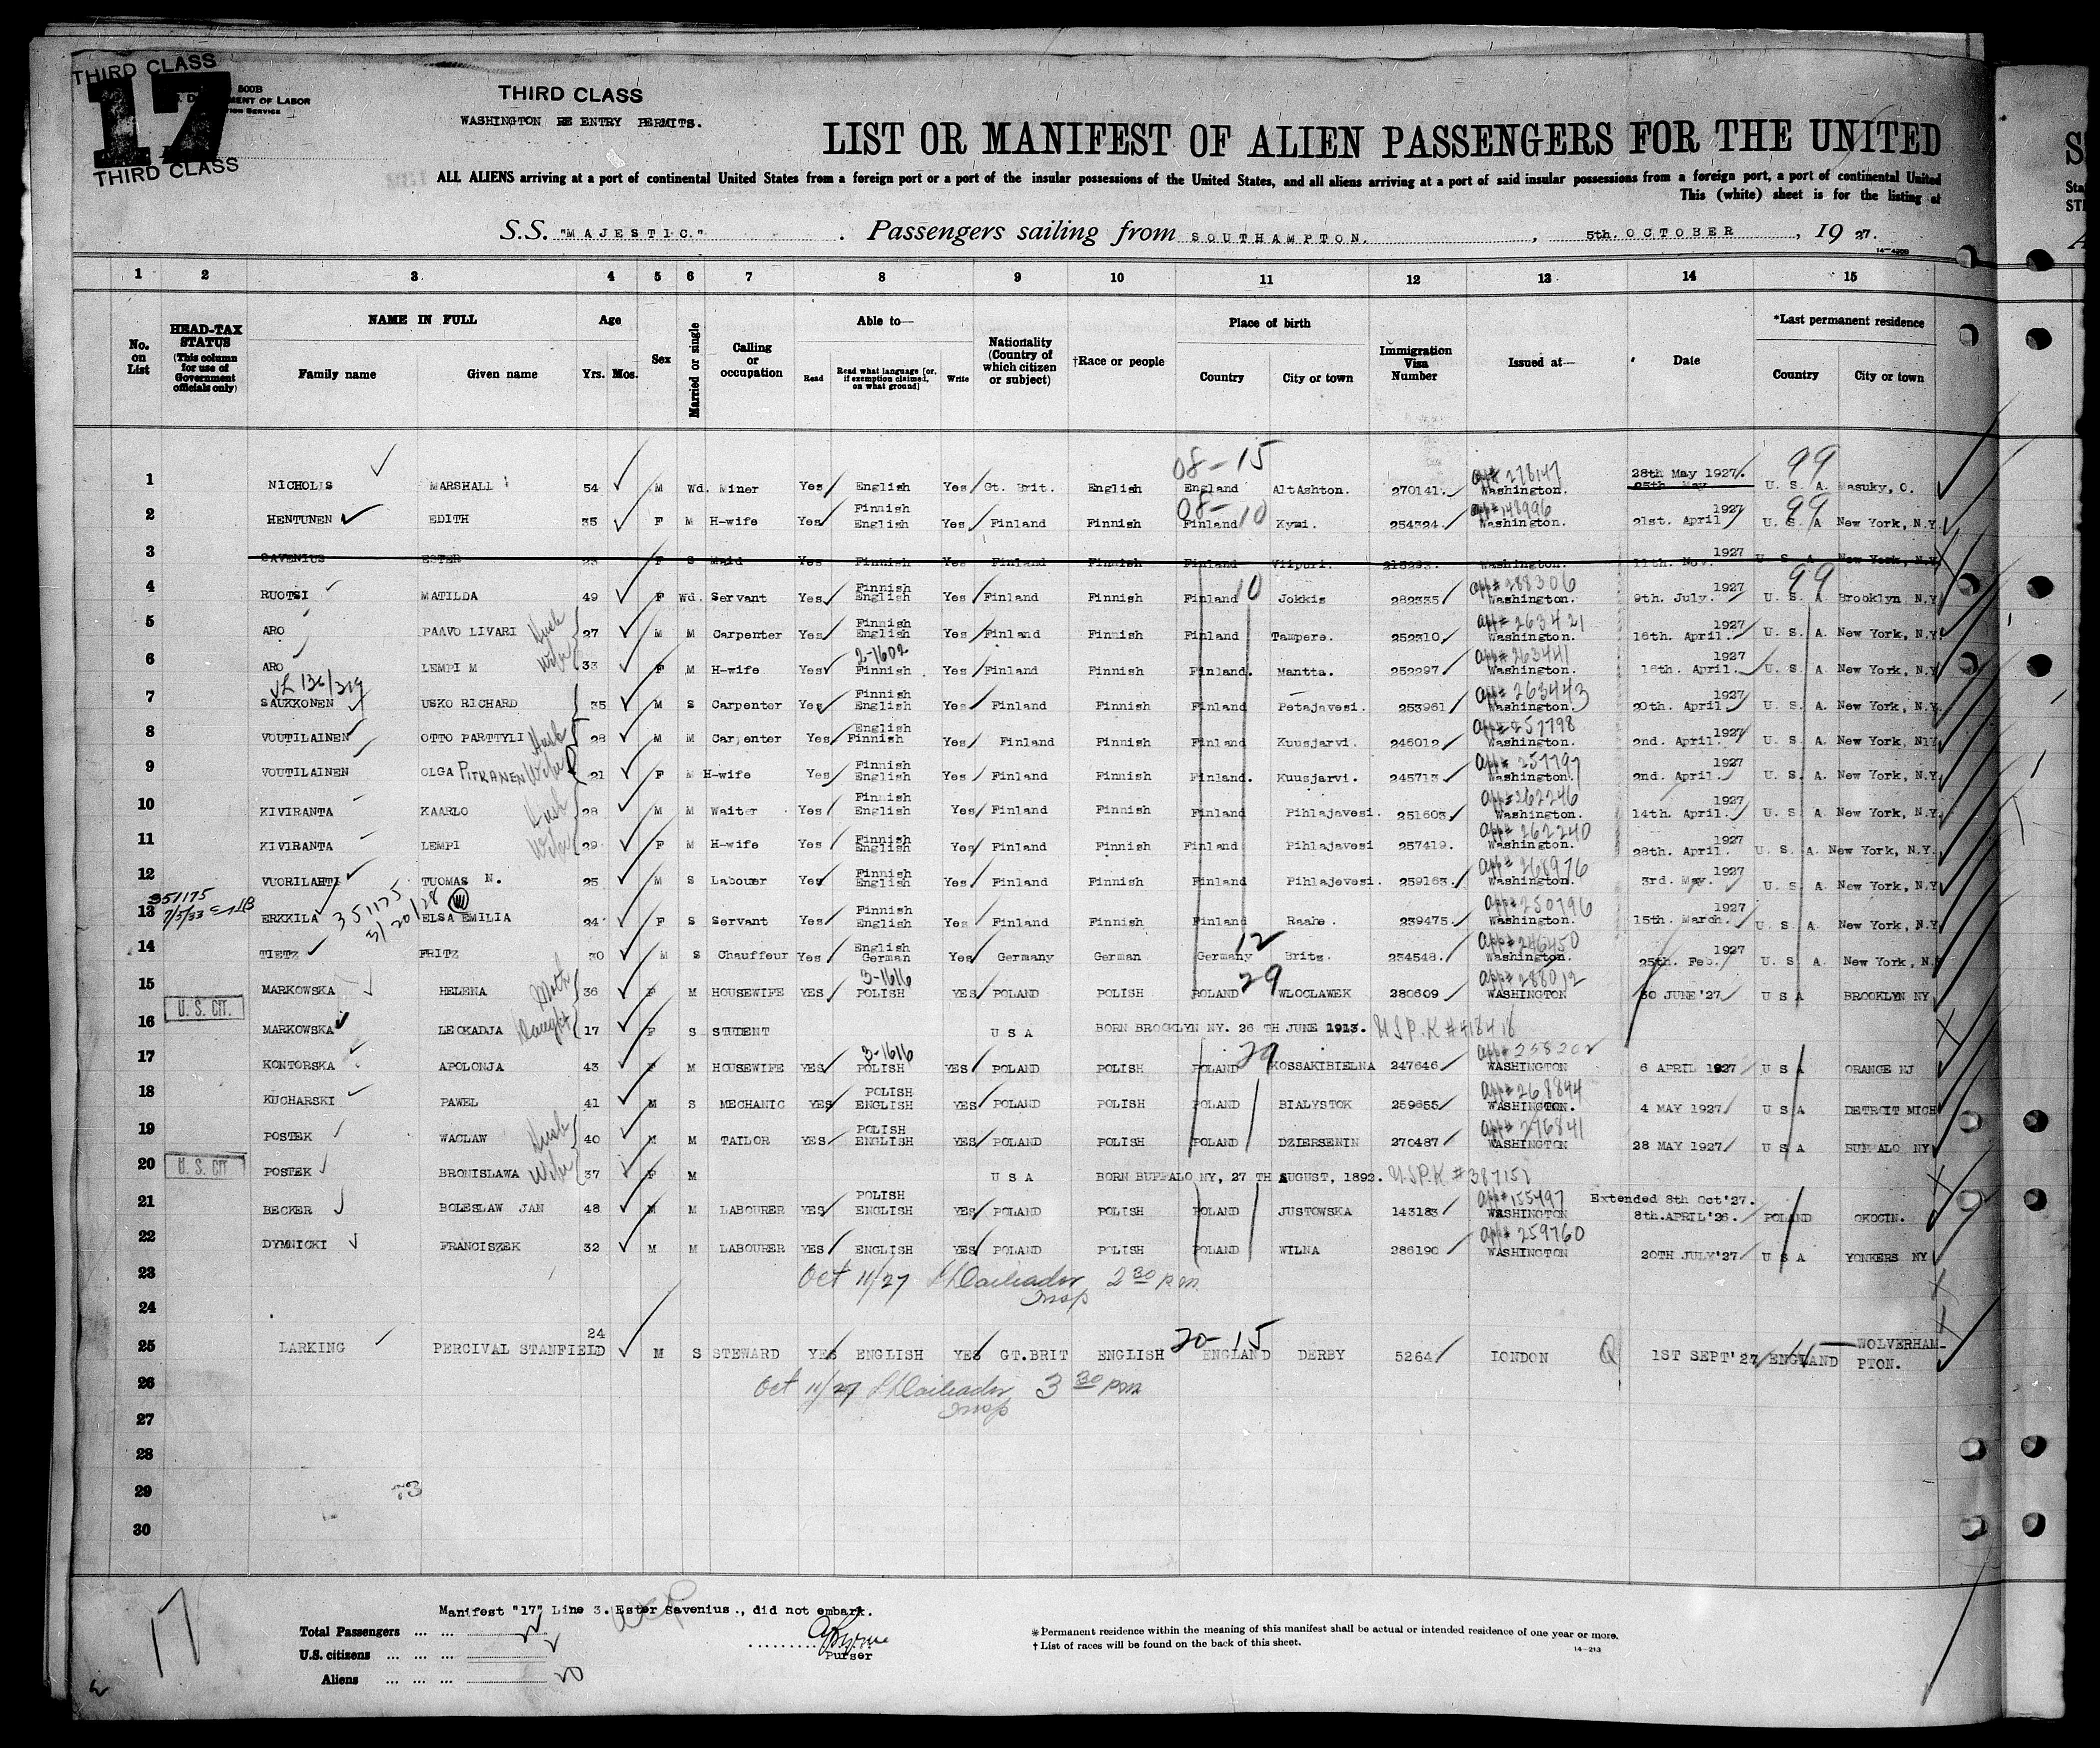 THIRD CLASS
17
THIRD CLASS
THIRD CLASS
WASHINGTON RE ENTRY PERMITS.
LIST OR MANIFEST OF ALIEN PASSENGERS FOR THE UNITED
ALL ALIENS arriving at a port of continental United States from a foreign port or a port of the insular possessions of the United States, and all aliens arriving at a port of said insular possessions from a foreign port, a port of continental United
This (white) sheet is for the listing of
S.S. "MAJESTIC." Passengers sailing from SOUTHAMPTON, 5th. OCTOBER, 1927.
1 2 3 4 5 6 7 8 9 10 11 12 13 14 15
No. on List
HEAD-TAX STATUS (This column for use of Government officials only)
NAME IN FULL Family name Given name
Age Yrs. Mos.
Sex
Married or single
Calling or occupation
Able to— Read Read what language [or, if exemption claimed, on what ground] Write
Nationality (Country of which citizen or subject)
†Race or people
Place of birth Country City or town
Immigration Visa Number
Issued at—
Date
*Last permanent residence Country City or town
08-15 App# 278147 28th May 1927. 99
1 NICHOLLS MARSHALL 54 M Wd. Miner Yes English Yes Gt. Brit. English England AltAshton. 270141. Washington. 25th May. U. S. A. Masuky, O.
08-10 App# 148996 99
2 HENTUNEN EDITH 35 F M H-wife Yes Finnish English Yes Finland Finnish Finland Kymi. 254324. Washington. 21st. April 1927 U. S. A New York, N.Y.
3 SAVENIUS ESTER 23 F S Maid Yes Finnish Yes Finland Finnish Finland Viipuri. 215293. Washington. 11th. Nov. 1927 U S A New York, N.Y.
10 App# 288306 99
4 RUOTSI MATILDA 49 F Wd. Servant Yes Finnish English Yes Finland Finnish Finland Jokkis 282335 Washington. 9th. July. 1927 U. S. A Brooklyn N.Y
5 ARO PAAVO LIVARI Husb 27 M M Carpenter Yes Finnish English Yes Finland Finnish Finland Tampere. 252310. App# 263421 Washington. 16th. April. 1927 U. S. A. New York, N.Y
6 ARO LEMPI M Wife 33 F M H-wife Yes 2-1602 Finnish Yes Finland Finnish Finland. Mantta. 252297 App# 263441 Washington. 16th. April. 1927 U. S. A. New York, N.Y
7 SAUKKONEN USKO RICHARD 35 M S Carpenter Yes Finnish English Yes Finland Finnish Finland Petajavesi. 253961 App# 263443 Washington. 20th. April. 1927 U. S. A. New York, N.Y.
8 VOUTILAINEN OTTO PARTTYLI Husb 28 M M Carpenter Yes English Finnish Yes Finland Finnish Finland Kuusjarvi. 246012 App# 257798 Washington. 2nd. April. 1927 U. S. A. New York, N1Y
9 VOUTILAINEN OLGA PITKANEN Wife 21 F M H-wife Yes Finnish English Yes Finland Finnish Finland. Kuusjarvi. 245713 App# 257797 Washington. 2nd. April. 1927 U. S. A. New York, N.Y.
10 KIVIRANTA KAARLO Husb 28 M M Waiter Yes Finnish English Yes Finland Finnish Finland Pihlajavesi. 251603. App# 262246 Washington. 14th. April. 1927 U. S. A. New York, N.Y.
11 KIVIRANTA LEMPI Wife 29 F M H-wife Yes Finnish English Yes Finland Finnish Finland Pihlajavesi 257419. App# 262240 Washington. 28th. April. 1927 U. S. A. New York, N.Y.
12 VUORILAHTI TUOMAS N. 25 M S Labouer Yes Finnish English Yes Finland Finnish Finland Pihlajevesi. 259163. App# 268976 Washington. 3rd. May. 1927 U. S. A. New York, N.Y
351175 7/5/33 351175 3/20/28
13 ERKKILA ELSA EMILIA 24 F S Servant Yes Finnish English Yes Finland Finnish Finland Raahe. 239475. App# 250796 Washington. 15th. March. 1927 U. S. A. New York, N.Y
12
14 TIETZ FRITZ 30 M S Chauffeur Yes English German Yes Germany German Germany Britz. 234548. App# 246450 Washington. 25th. Feb. 1927 U. S. A. New York, N.Y
29
15 MARKOWSKA HELENA Moth 36 F M HOUSEWIFE YES 3-1616 POLISH YES POLAND POLISH POLAND WLOCLAWEK 280609 App# 288012 WASHINGTON 30 JUNE '27 U S A BROOKLYN NY
U. S. CIT.
16 MARKOWSKA LEOKADJA Daught 17 F S STUDENT U S A BORN BROOKLYN NY. 26 TH JUNE 1913. U.S.P.K #418418
29
17 KONTORSKA APOLONJA 43 F M HOUSEWIFE YES 3-1616 POLISH YES POLAND POLISH POLAND KOSSAKIBIELNA 247646 App# 258202 WASHINGTON 6 APRIL 1927 U S A ORANGE NJ
18 KUCHARSKI PAWEL 41 M S MECHANIC YES POLISH ENGLISH YES POLAND POLISH POLAND BIALYSTOK 259655 App# 268894 WASHINGTON. 4 MAY 1927 U S A DETROIT MICH
19 POSTEK WACLAW Husb 40 M M TAILOR YES POLISH ENGLISH YES POLAND POLISH POLAND DZIERSENIN 270487 App# 276841 WASHINGTON 28 MAY 1927 U S A BUFFALO NY
U. S. CIT
20 POSTEK BRONISLAWA Wife 37 F M U S A BORN BUFFALO NY, 27 TH AUGUST, 1892. U.S.P.K. #387151
21 BECKER BOLESLAW JAN 48 M M LABOURER YES POLISH ENGLISH YES POLAND POLISH POLAND JUSTOWSKA 143183 App# 155497 WASHINGTON Extended 8th Oct'27. 8th.APRIL'26. POLAND OKOCIN.
22 DYMNICKI FRANCISZEK 32 M M LABOURER YES ENGLISH YES POLAND POLISH POLAND WILNA 286190 App# 259760 WASHINGTON 20TH JULY'27 U S A YONKERS NY
23 Oct 11/27 Insp 2 30 p.m.
24
20-15
25 LARKING PERCIVAL STANFIELD 24 M S STEWARD YES ENGLISH YES GT.BRIT ENGLISH ENGLAND DERBY 5264 LONDON Q 1ST SEPT'27 ENGLAND WOLVERHAM-PTON.
26 Oct 11/27 Insp 3 30 pm
27
28
29
30
17
Manifest "17" Line 3. Ester Savenius., did not embark.
Total Passengers
U.S. citizens
Aliens 20
Purser
*Permanent residence within the meaning of this manifest shall be actual or intended residence of one year or more.
† List of races will be found on the back of this sheet.
14-213